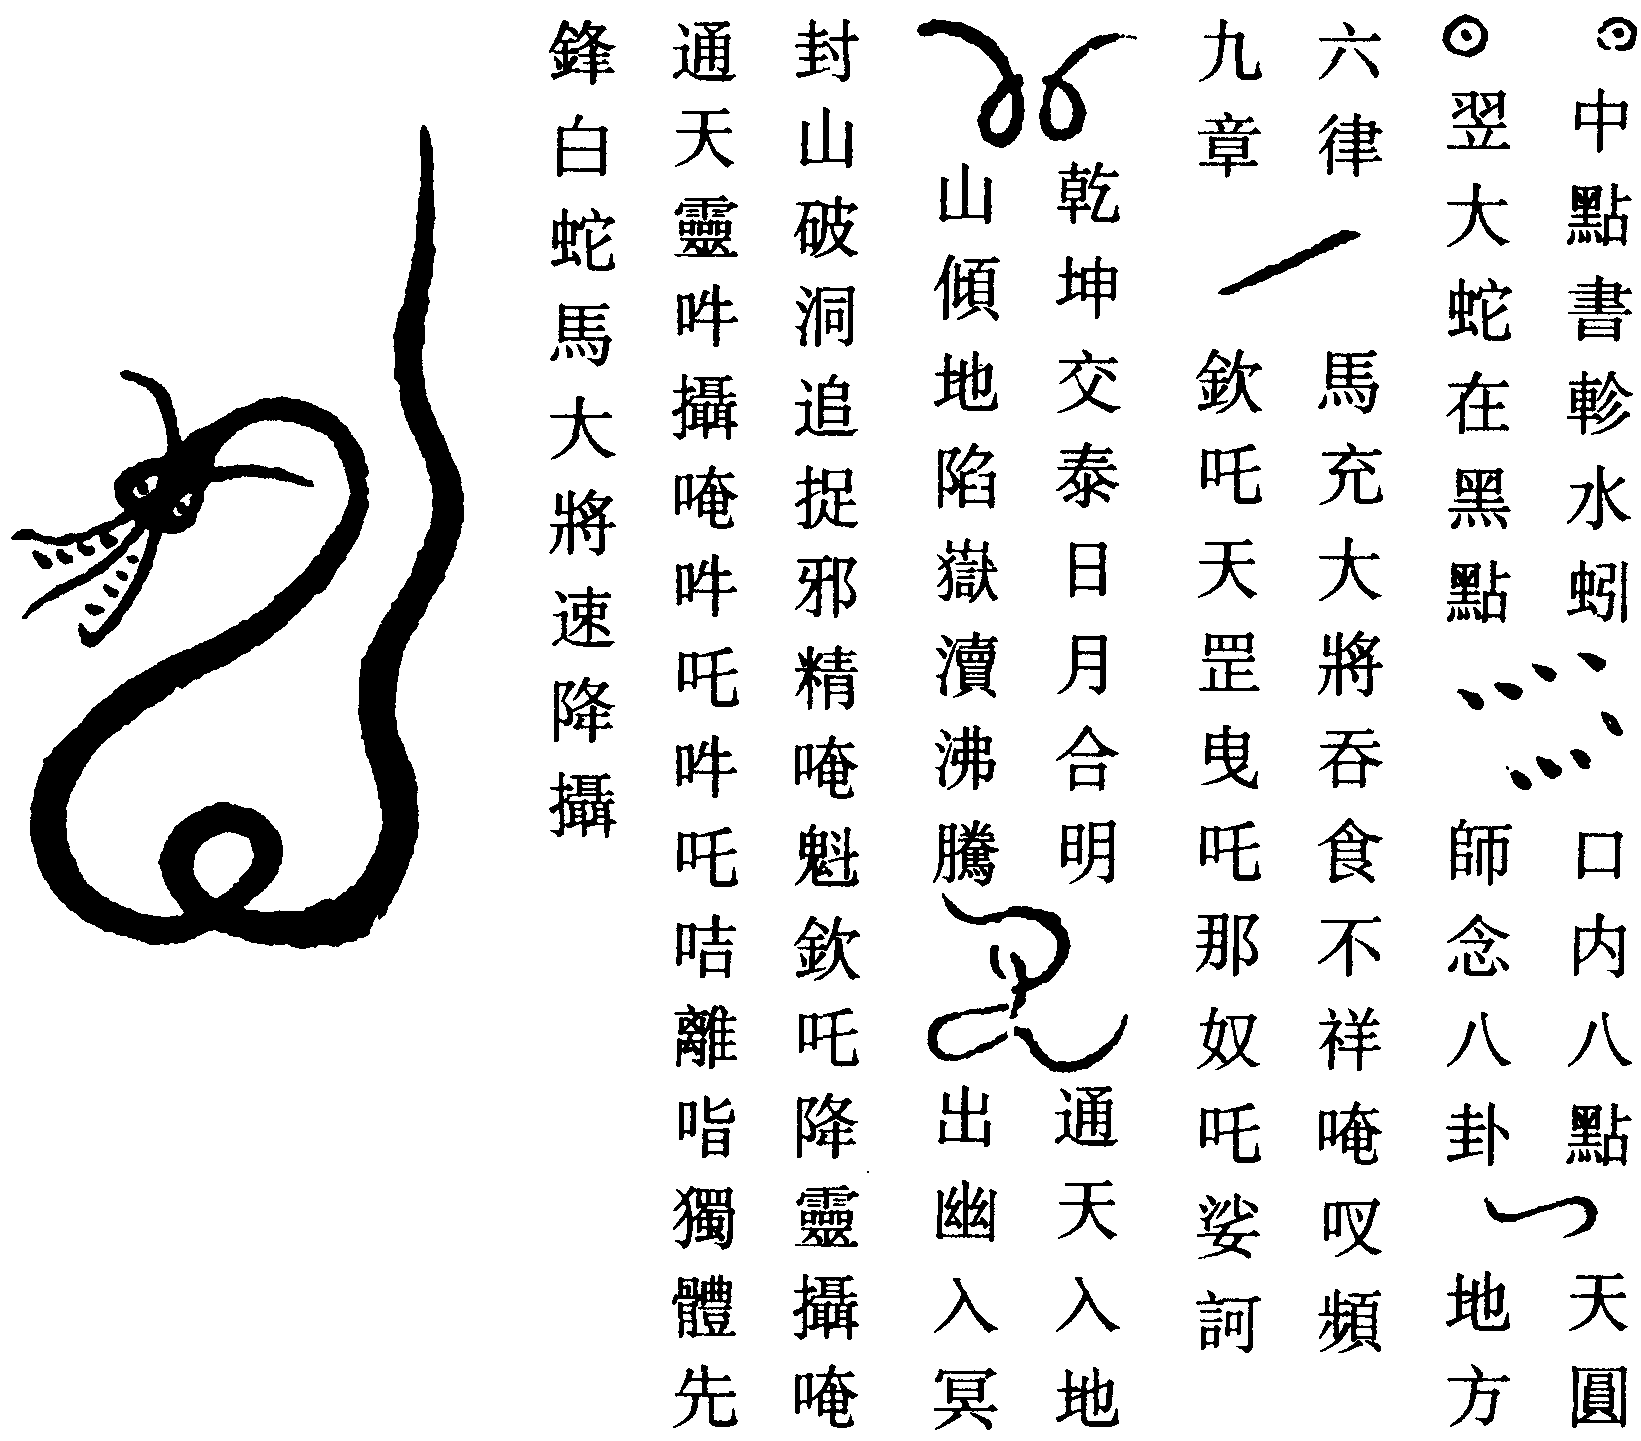 中點書軫水蚓
翌大蛇在黑點
口内八點
師念八卦
天圓
地方
六律
九章
馬充大將吞食不祥唵頻
欽吒天罡曳吒那奴吒娑訶
乾坤交泰日月合明
山傾地陷嶽瀆沸騰
通天入地
出幽入冥
封山破洞追捉邪精唵魁欽吒降靈攝唵
通天靈吽攝唵吽吒吽吒咭離獨體先
鋒白蛇馬大將速降攝